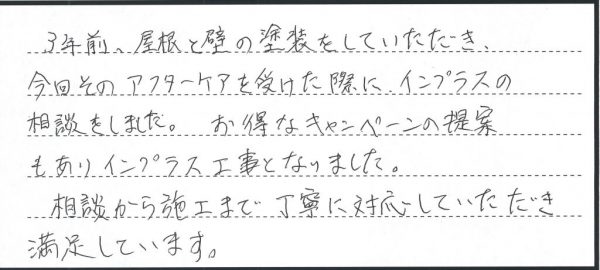 3年前、屋根と壁の塗装をしていただき、
今回そのアフターケアを受けた際に、インプラスの
相談をしました。 お得なキャンペーンの提案
もありインプラス工事となりました。
相談から施工まで丁寧に対応していただき
満足しています。